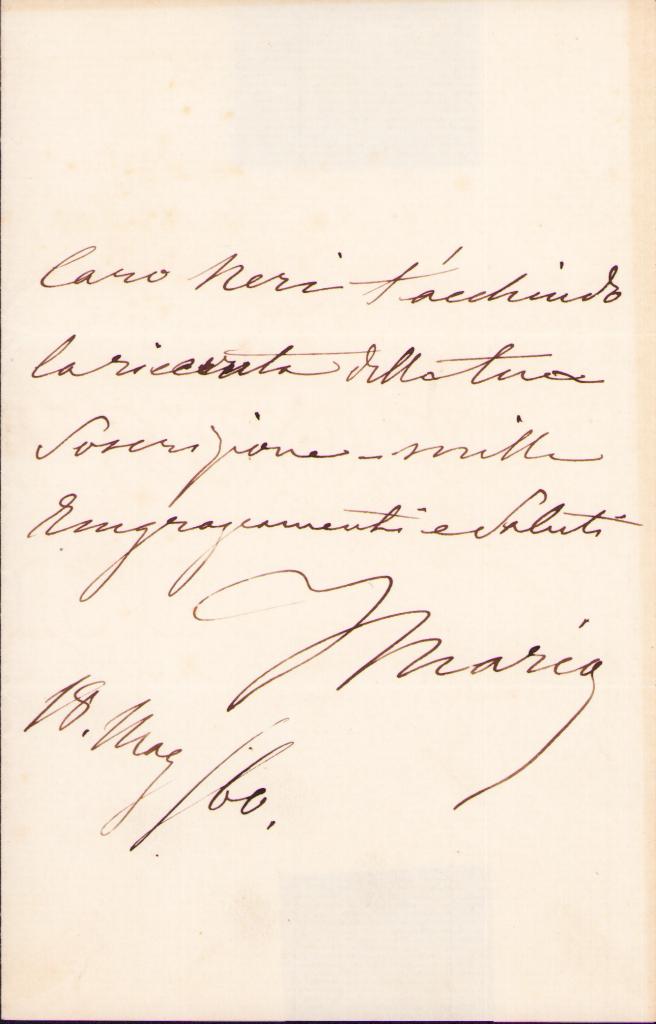 Caro Neri t'acchiudo
la ricevuta della tua
Soscrizione - mille
Ringraziamenti e Saluti
Mario
18. Mag/60.